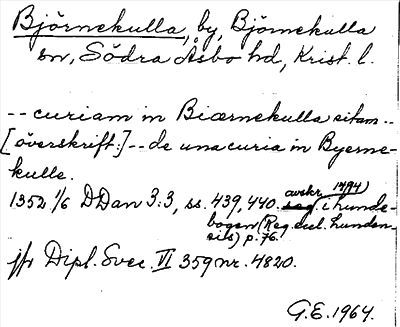 Björnekulla, by, Björnekulla
sn, Södra Åsbo hd, Krist. l.
-- curiam in Biærnekulla sitam --
[överskrift:] -- de una curia in Byerne-
kulle.
1352 1/6 DDan 3:3, ss. 439, 440. avskr. 1494 i Lunde-
bogen (Reg. eccl. Lunden-
sis) p. 76.
jfr Dipl. Svec. VI 359 nr. 4820.
G.E. 1964.